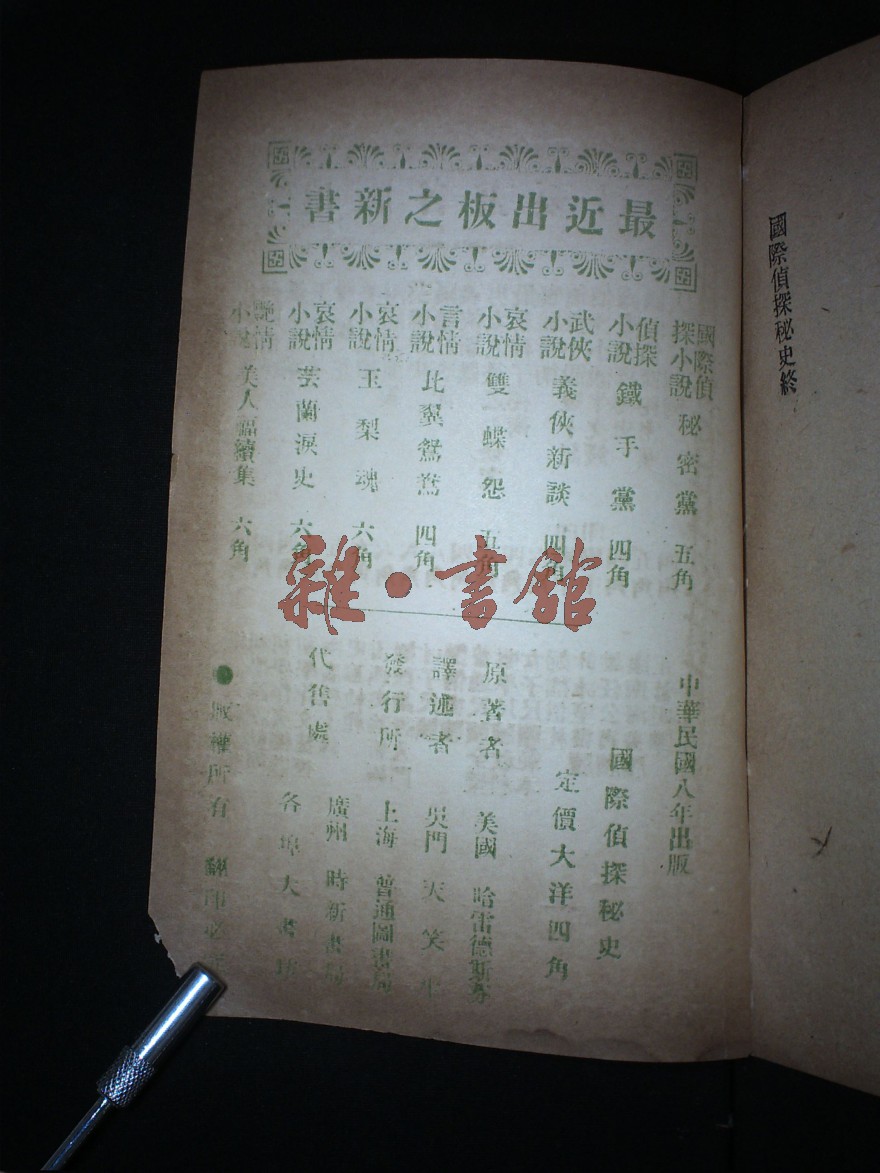 國際偵探秘史終
最近出板之新書
國際偵探小說 秘密黨 五角
偵探小說 鐵手黨 四角
武俠小說 義俠新談 四角
哀情小說 雙蝶怨 五角
言情小說 比翼鴛鴦 四角
哀情小說 玉梨魂 六角
哀情小說 芸蘭淚史 六角
艷情小說 美人福續集 六角
中華民國八年出版
國際偵探秘史
定價大洋四角
原著者 美國 哈雷德斯芬
譯述者 吳門 天笑生
發行所 上海 普通圖書局
廣州 時新書局
代售處 各埠大書坊
●版權所有 翻印必究
雜·書館